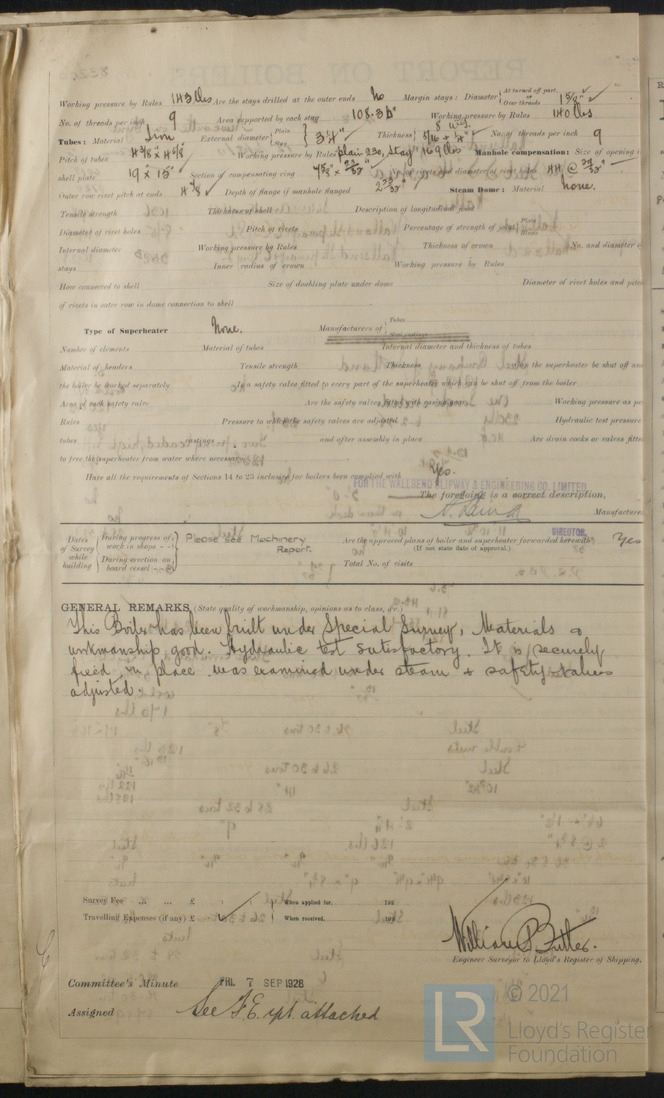 Working pressure by Rules 143 lbs Are the stays drilled at the outer ends No Margin stays: Diameter { At turned off part, or Over threads 1 5/8" ✓
No. of threads per inch 9 Area supported by each stay 108.3 □" Working pressure by Rules 140 lbs
Tubes: Material Iron External diameter { Plain Stays 3 1/4" ✓ Thickness { 8 W.G. 5/16 + 1/4" ✓ No. of threads per inch 9
Pitch of tubes 4 3/8 × 4 5/8 Working pressure by Rules plain 230, stay 169 lbs Manhole compensation: Size of opening in
shell plate 19 × 15" ✓ Section of compensating ring No. of rivets and diameter of rivet holes 44 @ 29/32"
Outer row rivet pitch at ends 4 7/8" Depth of flange if manhole flanged 2 29/32" Steam Dome: Material None.
Tensile strength Thickness of shell Description of longitudinal joint
Diameter of rivet holes Pitch of rivets Percentage of strength of joint
Internal diameter Working pressure by Rules Thickness of crown No. and diameter of
stays Inner radius of crown Working pressure by Rules
How connected to shell Size of doubling plate under dome Diameter of rivet holes and pitch
of rivets in outer row in dome connection to shell
Type of Superheater None. Manufacturers of { Tubes
Number of elements Material of tubes Internal diameter and thickness of tubes
Material of headers Tensile strength Thickness Can the superheater be shut off and
the boiler be worked separately Is a safety valve fitted to every part of the superheater which can be shut off from the boiler
Area of each safety valve Are the safety valves fitted with easing gear Working pressure as per
Rules Pressure to which the safety valves are adjusted Hydraulic test pressure
tubes castings and after assembly in place Are drain cocks or valves fitted
to free the superheater from water where necessary
Have all the requirements of Sections 14 to 23 inclusive for boilers been complied with Yes.
FOR THE WALLSEND SLIPWAY & ENGINEERING CO. LIMITED.
The foregoing is a correct description,
Manufacturer
DIRECTOR.
Dates of Survey while building { During progress of work in shops - - During erection on board vessel - - - } Please see Machinery Report. Are the approved plans of boiler and superheater forwarded herewith Yes
(If not state date of approval.)
Total No. of visits
GENERAL REMARKS (State quality of workmanship, opinions as to class, &c.)
This Boiler has been built under Special Survey, Materials &
workmanship good. Hydraulic test satisfactory. It is securely
fixed in place was examined under steam & safety valves
adjusted.
Survey Fee ... ... £ : : When applied for, 192
Travelling Expenses (if any) £ : : When received, 192
William Butler.
Engineer Surveyor to Lloyd's Register of Shipping.
Committee's Minute FRI. 7 SEP 1928
Assigned See F.E. rpt. attached
LR © 2021
Lloyd's Register
Foundation